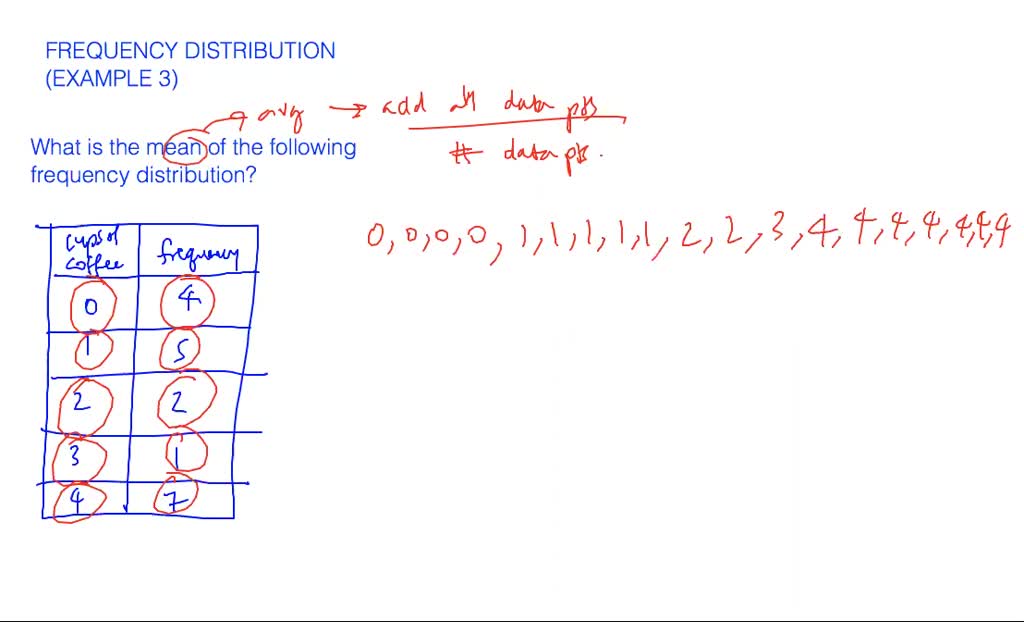 FREQUENCY DISTRIBUTION
(EXAMPLE 3)
avg → add all data pts
# data pts.
What is the mean of the following
frequency distribution?
0, 0, 0, 0, 1, 1, 1, 1, 1, 2, 2, 3, 4, 4, 4, 4, 4, 4, 4
cups of coffee frequency
0 4
1 5
2 2
3 1
4 7